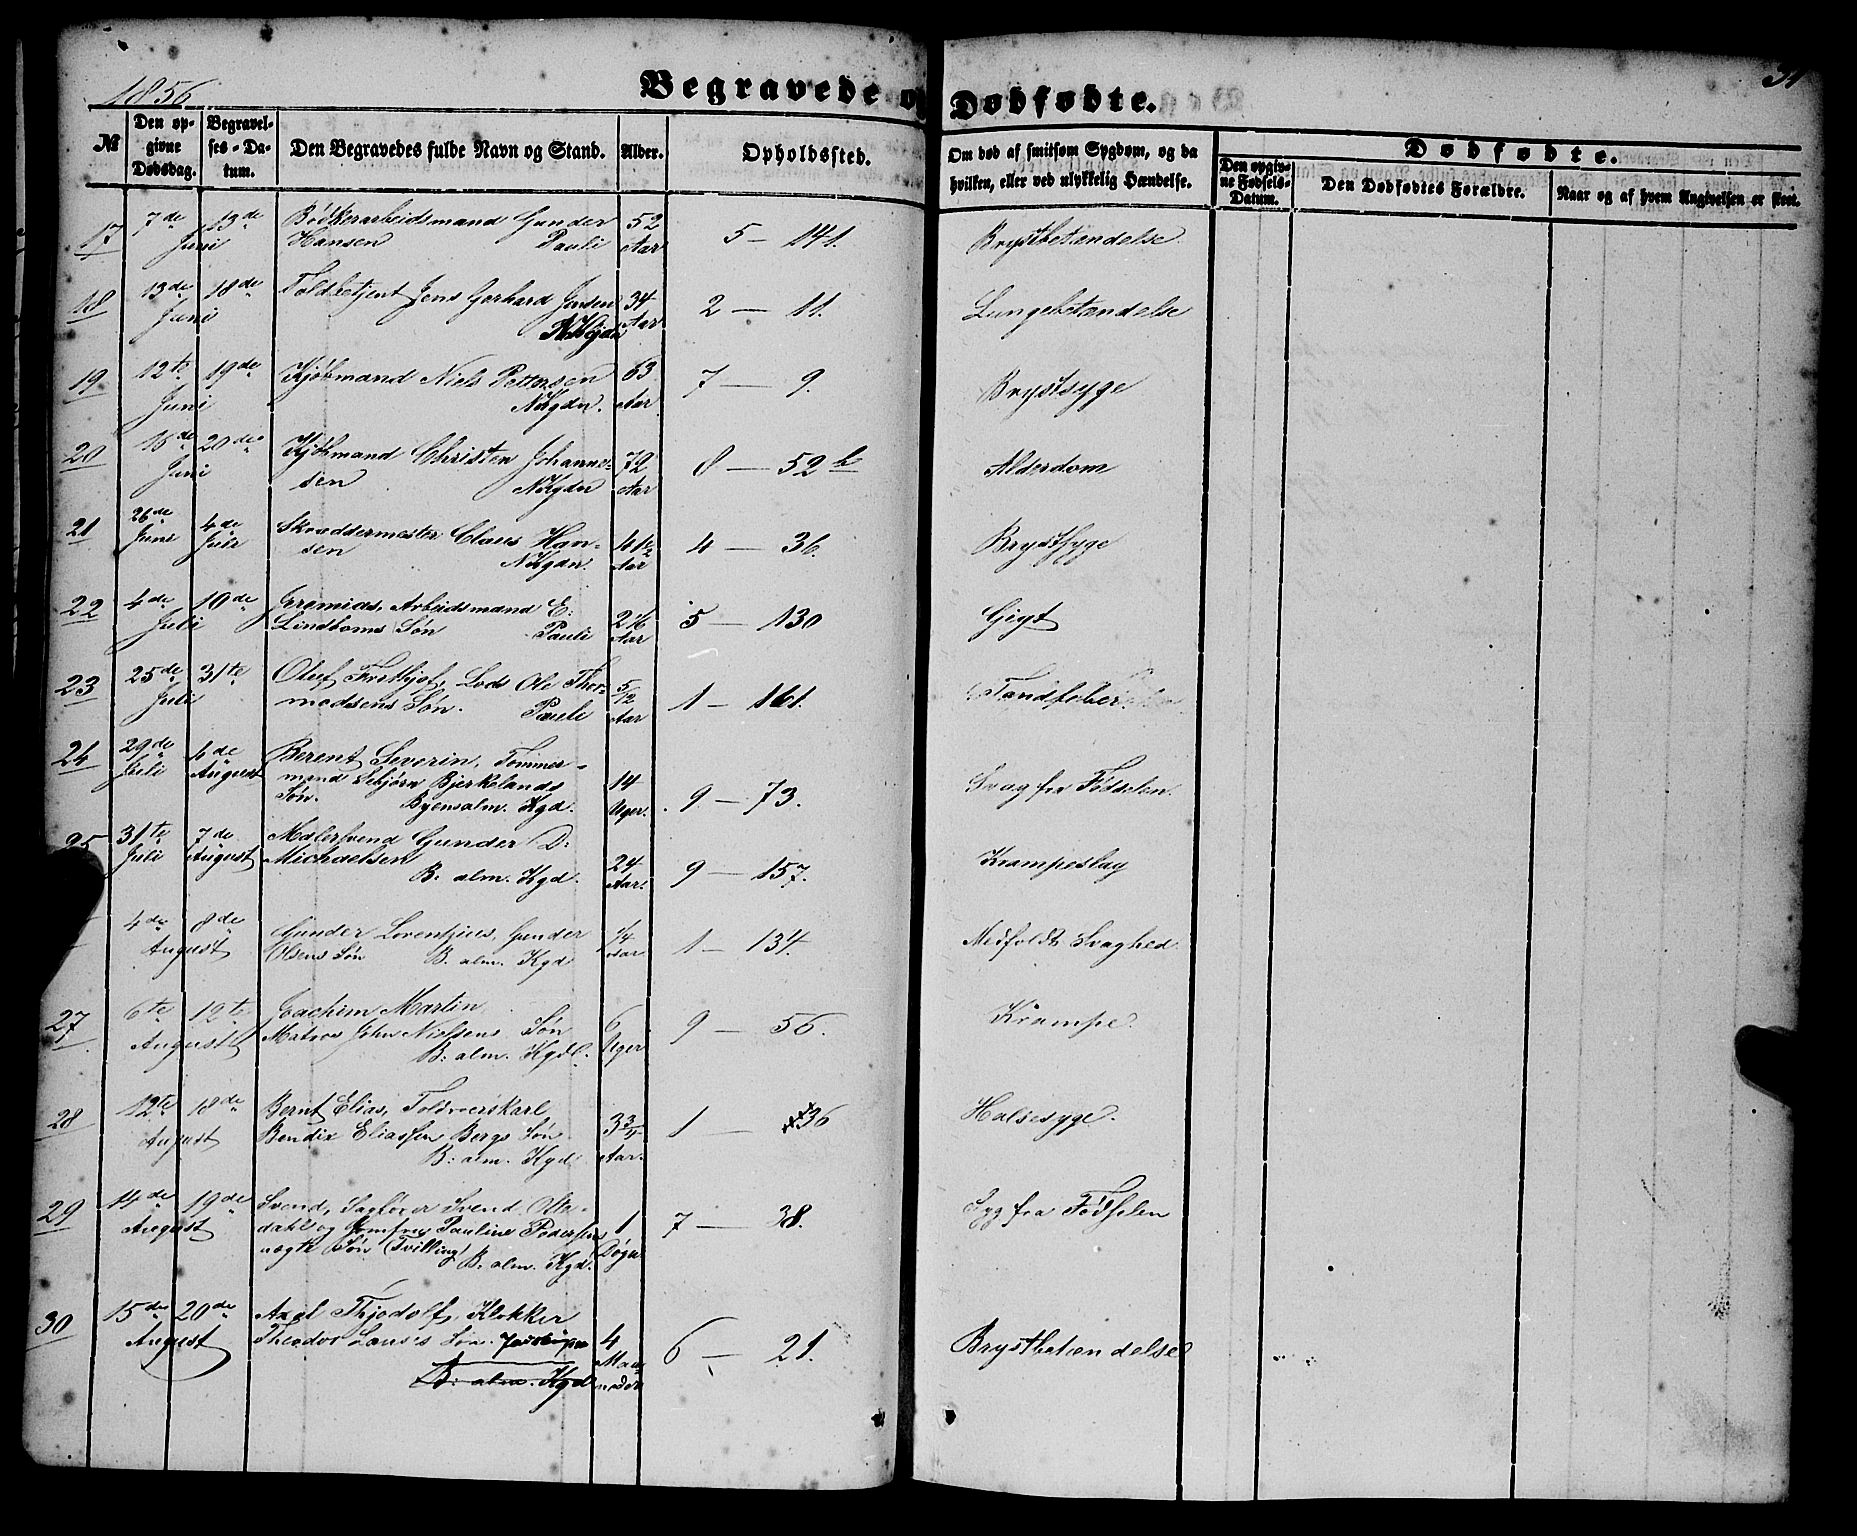 1856
Begravede og Dødfødte.
34
№
Den opgivne Dødsdag.
Begravelses-Datum.
Den Begravedes fulde Navn og Stand.
Alder.
Opholdssted.
Om død af smitsom Sygdom, og da hvilken, eller ved ulykkelig Hændelse.
Dødfødte.
Den opgivne Fødsels-Datum.
Den Dødfødtes Forældre.
Naar og af hvem Angivelsen er skeet.
17 7de 13de Bødkerarbeidsmand Gunder 52 5 — 141. Brystbetændelse.
Juni Hansen Pauli Aar
18 13de 18de Toldbetjent Jens Gerhard Jensen 34 2 — 11. Lungebetændelse
Juni N.Kgdn Aar
19 12te 19de Kjøbmand Niels Pettersen 63 7 — 9. Brystsyge
Juni N.Kgdn. Aar
20 15de 20de Kjøbmand Christen Johanne- 72 8 — 52 b Alderdom
Juni sen N.Kgdn Aar
21 26de 4de Skræddermester Claus Han- 4 — 36. Brystsyge
Juni Juli sen N.Kgdn. Aar
22 4de 10de Jeremias, Arbeidsmand E: 5 — 130 Gigt
Juli Lindboms Søn Pauli Aar
23 25de 31te Oluf Frethjof, Lods Ole Thor- 5/12 1 — 161. Tandfeber.
Juli modsens Søn. Pauli Aar
24 29de 4de Berent Severin, Tømmer-
Juli August mand Sebjørn Bjerkelands 14 9 — 73. Svag fra Fødselen.
Søn. Byens alm. Kgd. Uger.
25 31te 7de Malersvend Gunder D:
Juli August Michaelsen 24 9 — 157. Krampeslag
B. alm. Kgd. Aar.
4de 8de Gunder Lorentzius, Gunder 1/4 1 — 134. Medfødt Svaghed.
August Olsens Søn B. alm. Kgd Aar
27 6te 12te Joachim Martin, 6 9 — 56. Krampe.
August Matros John Nielsens Søn Uger
B. alm. Kgd.
28 12te 18de Bernt Elias, Toldroerskarl
August Bendix Eliassen Bergs Søn 3 3/4 1 — 36 Halsesyge.
B: alm. Kgd Aar.
29 14de 19de Svend, Sagfører Svend Olte-
August dahl og Jomfru Pauline Pedersens 1 7 — 38. Syg fra Fødselen
uægte Søn (Tvilling) B. alm. Kgd. Døgn
30 15de 20de Axel Thjodolf, Klokker
August Theodor Laus's Søn. 4 6 — 21. Brystbetændelse
B: alm. Kgd Maaneder